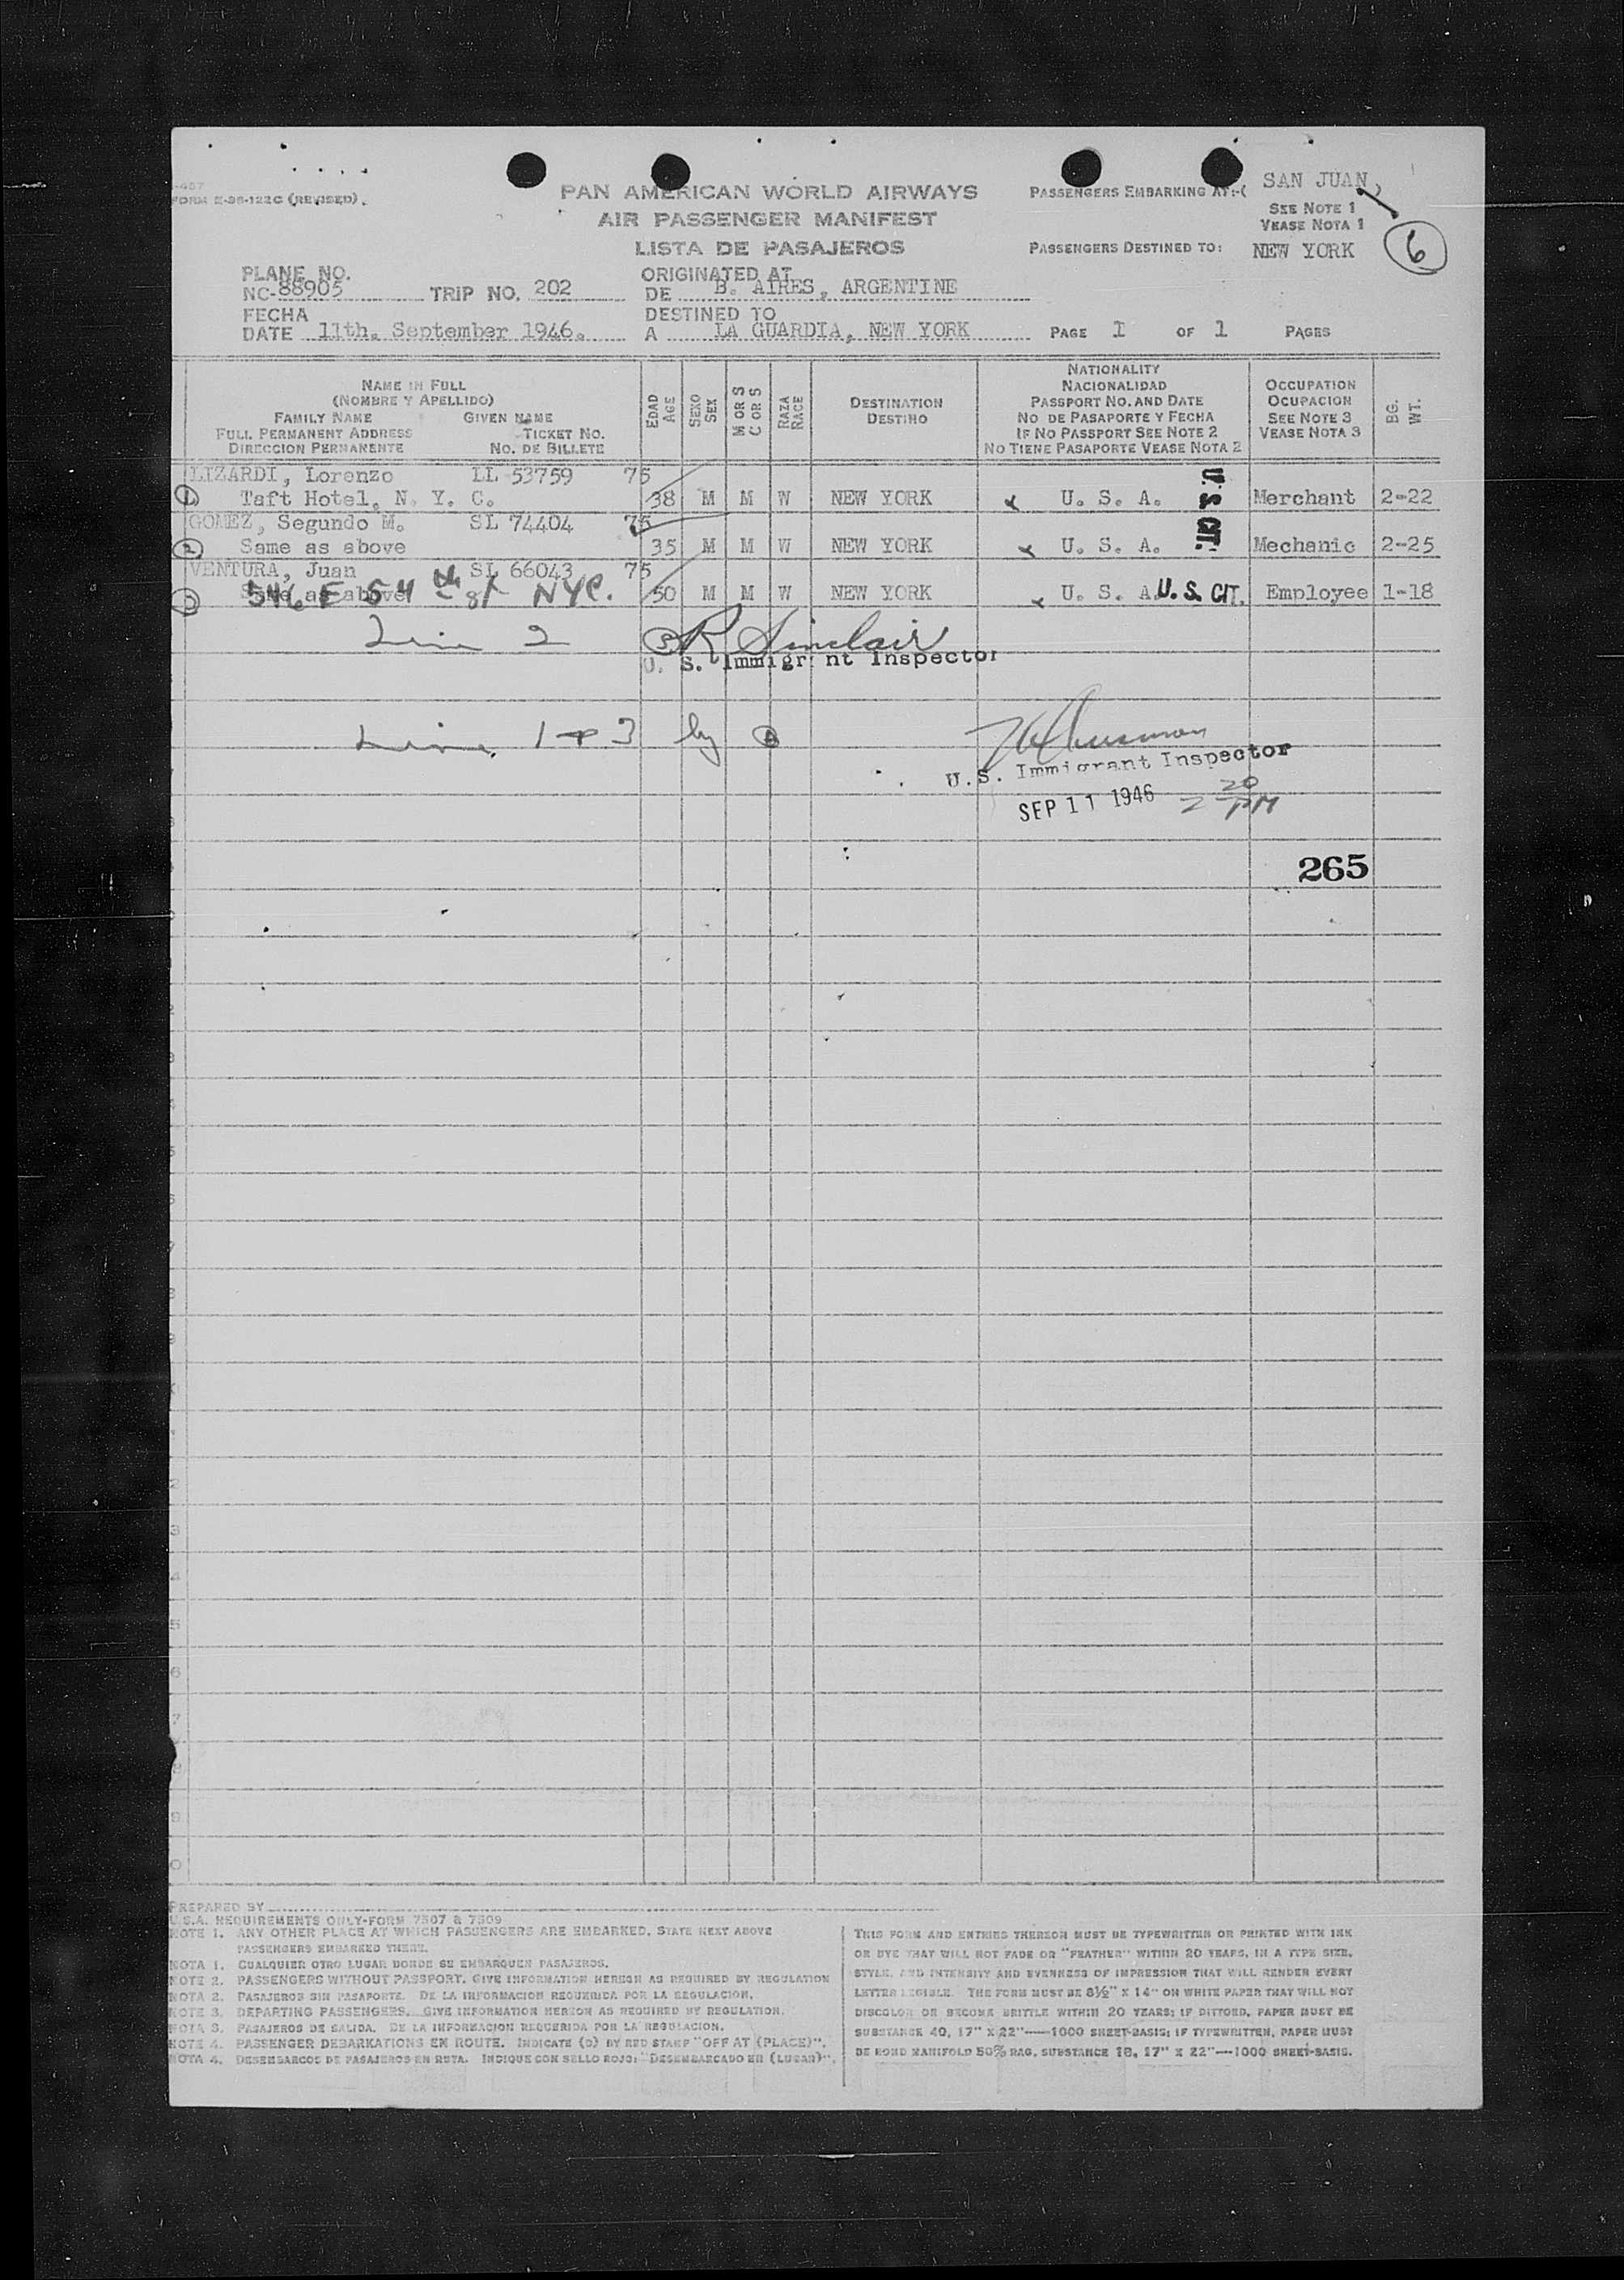 -457
FORM E-96-122C (REVISED).
PAN AMERICAN WORLD AIRWAYS
AIR PASSENGER MANIFEST
LISTA DE PASAJEROS
PASSENGERS EMBARKING AT:-( SAN JUAN,
SEE NOTE 1
VEASE NOTA 1
PASSENGERS DESTINED TO: NEW YORK
6
PLANE NO.
NC-88905 TRIP NO. 202
ORIGINATED AT
DE B. AIRES, ARGENTINE
FECHA
DATE 11th. September 1946.
DESTINED TO
A LA GUARDIA, NEW YORK
PAGE I OF 1 PAGES
NAME IN FULL
(NOMBRE Y APELLIDO)
FAMILY NAME GIVEN NAME
FULL PERMANENT ADDRESS TICKET NO.
DIRECCION PERMANENTE NO. DE BILLETE
EDAD
AGE
SEXO
SEX
M OR S
C OR S
RAZA
RACE
DESTINATION
DESTINO
NATIONALITY
NACIONALIDAD
PASSPORT NO. AND DATE
NO DE PASAPORTE Y FECHA
IF NO PASSPORT SEE NOTE 2
NO TIENE PASAPORTE VEASE NOTA 2
OCCUPATION
OCUPACION
SEE NOTE 3
VEASE NOTA 3
BG.
WT.
LIZARDI, Lorenzo LL 53759 75
1 Taft Hotel, N. Y. C. 38 M M W NEW YORK U. S. A. U.S. CIT. Merchant 2-22
GOMEZ, Segundo M. SL 74404 75
2 Same as above 35 M M W NEW YORK U. S. A. Mechanic 2-25
VENTURA, Juan SL 66043 75
3 Same as above 50 M M W NEW YORK U. S. A. U.S. CIT. Employee 1-18
546 E 54 th St NYC.
Line 2 R Sinclair
U. S. Immigrant Inspector
Line 1 + 3 by
U.S. Immigrant Inspector
SEP 11 1946 2 20 PM
265
PREPARED BY
U.S.A. REQUIREMENTS ONLY-FORM 7507 & 7509
NOTE 1. ANY OTHER PLACE AT WHICH PASSENGERS ARE EMBARKED, STATE NEXT ABOVE
PASSENGERS EMBARKED THERE.
NOTA 1. CUALQUIER OTRO LUGAR DONDE SE EMBARQUEN PASAJEROS.
NOTE 2. PASSENGERS WITHOUT PASSPORT. GIVE INFORMATION HEREON AS REQUIRED BY REGULATION
NOTA 2. PASAJEROS SIN PASAPORTE. DE LA INFORMACION REQUERIDA POR LA REGULACION.
NOTE 3. DEPARTING PASSENGERS. GIVE INFORMATION HEREON AS REQUIRED BY REGULATION.
NOTA 3. PASAJEROS DE SALIDA. DE LA INFORMACION REQUERIDA POR LA REGULACION.
NOTE 4. PASSENGER DEBARKATIONS EN ROUTE. INDICATE (D) BY RED STAMP "OFF AT (PLACE)".
NOTA 4. DESEMBARCOS DE PASAJEROS EN RUTA. INDIQUE CON SELLO ROJO: "DESEMBARCADO EN (LUGAR)".
THIS FORM AND ENTRIES THEREON MUST BE TYPEWRITTEN OR PRINTED WITH INK
OR DYE THAT WILL NOT FADE OR "FEATHER" WITHIN 20 YEARS, IN A TYPE SIZE,
STYLE, AND INTENSITY AND EVENNESS OF IMPRESSION THAT WILL RENDER EVERY
LETTER LEGIBLE. THE FORM MUST BE 8½" X 14" ON WHITE PAPER THAT WILL NOT
DISCOLOR OR BECOME BRITTLE WITHIN 20 YEARS; IF DITTOED, PAPER MUST BE
SUBSTANCE 40, 17" X 22"—1000 SHEET-BASIS; IF TYPEWRITTEN, PAPER MUST
BE BOND MANIFOLD 50% RAG, SUBSTANCE 18, 17" X 22"—1000 SHEET-BASIS.